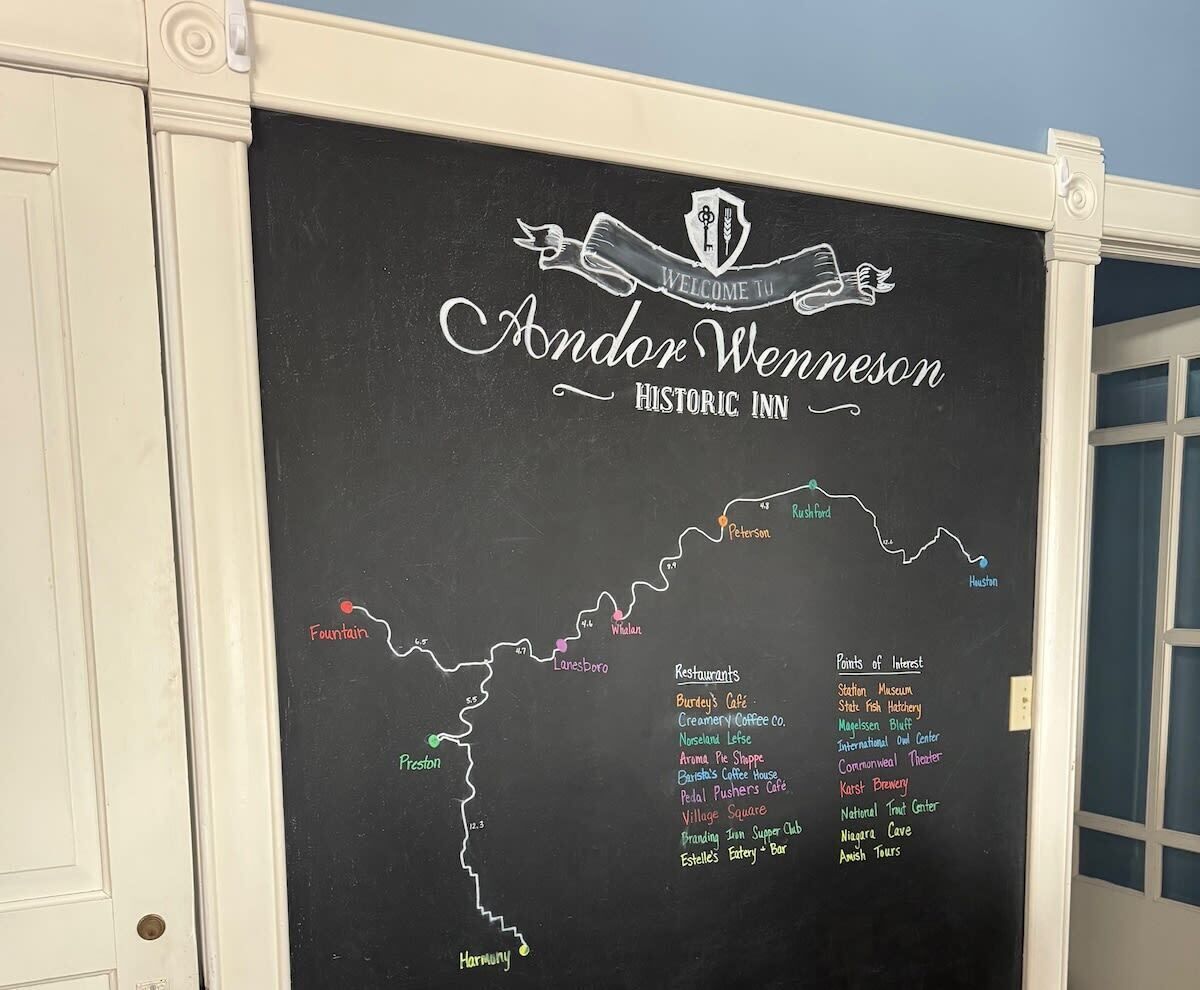 WELCOME TO
Andor Wenneson
HISTORIC INN
4.8
Rushford
Peterson
8.9
Houston
Fountain
6.5
4.6
Whalan
4.7
Lanesboro
5.5
Preston
12.3
Harmony
Restaurants
Burdey's Café
Creamery Coffee co.
Norseland Lefse
Aroma Pie Shoppe
Barista's Coffee House
Pedal Pushers Café
Village Square
Branding Iron Supper Club
Estelle's Eatery + Bar
Points of Interest
Station Museum
State Fish Hatchery
Magelssen Bluff
International Owl Center
Commonweal Theater
Karst Brewery
National Trout Center
Niagara Cave
Amish Tours